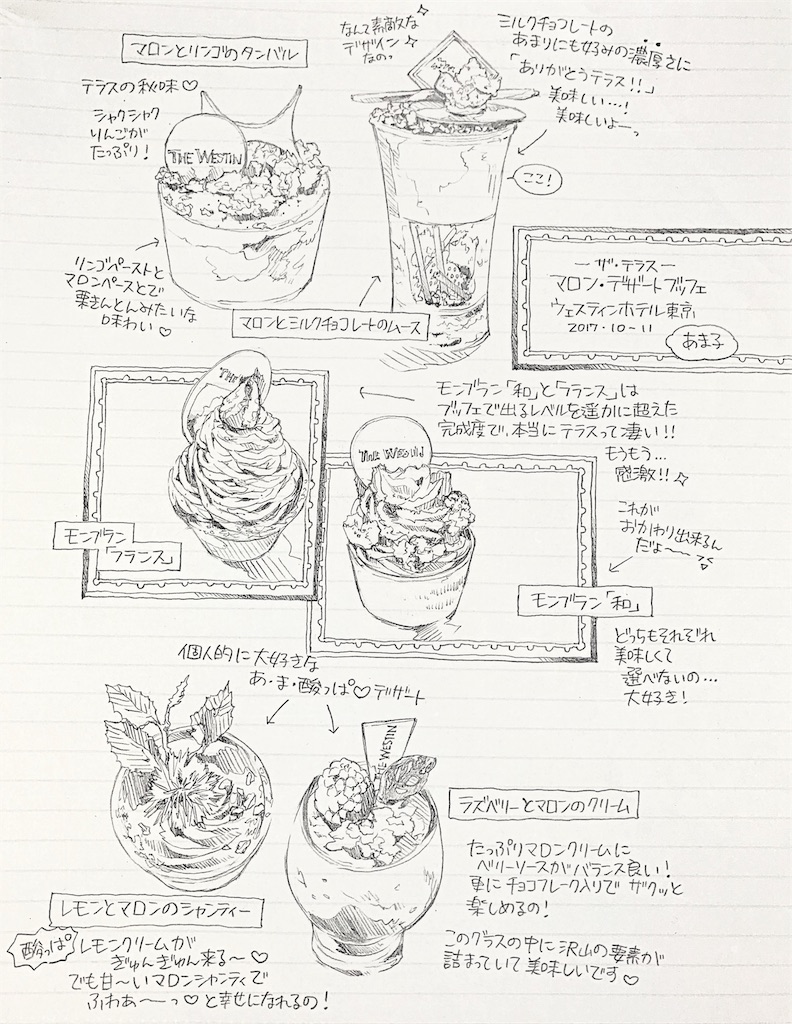 マロンとリンゴのタンバル
テラスの秋味♡
シャクシャク
りんごが
たっぷり!
THE WESTIN
リンゴペーストと
マロンペーストとで
栗きんとんみたいな
味わい♡
なんて素敵な
デザイン
なのっ
ミルクチョコレートの
あまりにも好みの濃厚さに
「ありがとうテラス!!」
美味しい…!
美味しいよーっ
ここ!
マロンとミルクチョコレートのムース
ーザ・テラスー
マロン・デザートブッフェ
ウェスティンホテル東京
2017・10~11
あま子
モンブラン「和」と「フランス」は
ブッフェで出るレベルを遥かに超えた
完成度で、本当にテラスって凄い!!
もうもう…
感激!!
これが
おかわり出来るん
だよ〜〜っ
THE
モンブラン
「フランス」
THE WESTIN
モンブラン「和」
どっちもそれぞれ
美味しくて
選べないの…
大好き!
個人的に大好きな
あ・ま・酸っぱ♡デザート
THE WESTIN
レモンとマロンのシャンティー
酸っぱ
レモンクリームが
ぎゅんぎゅん来る〜♡
でも甘〜いマロンシャンティで
ふわぁ〜っ♡と幸せになれるの!
ラズベリーとマロンのクリーム
たっぷりマロンクリームに
ベリーソースがバランス良い!
更にチョコフレーク入りでザクッと
楽しめるの!
このグラスの中に沢山の要素が
詰まっていて美味しいです♡